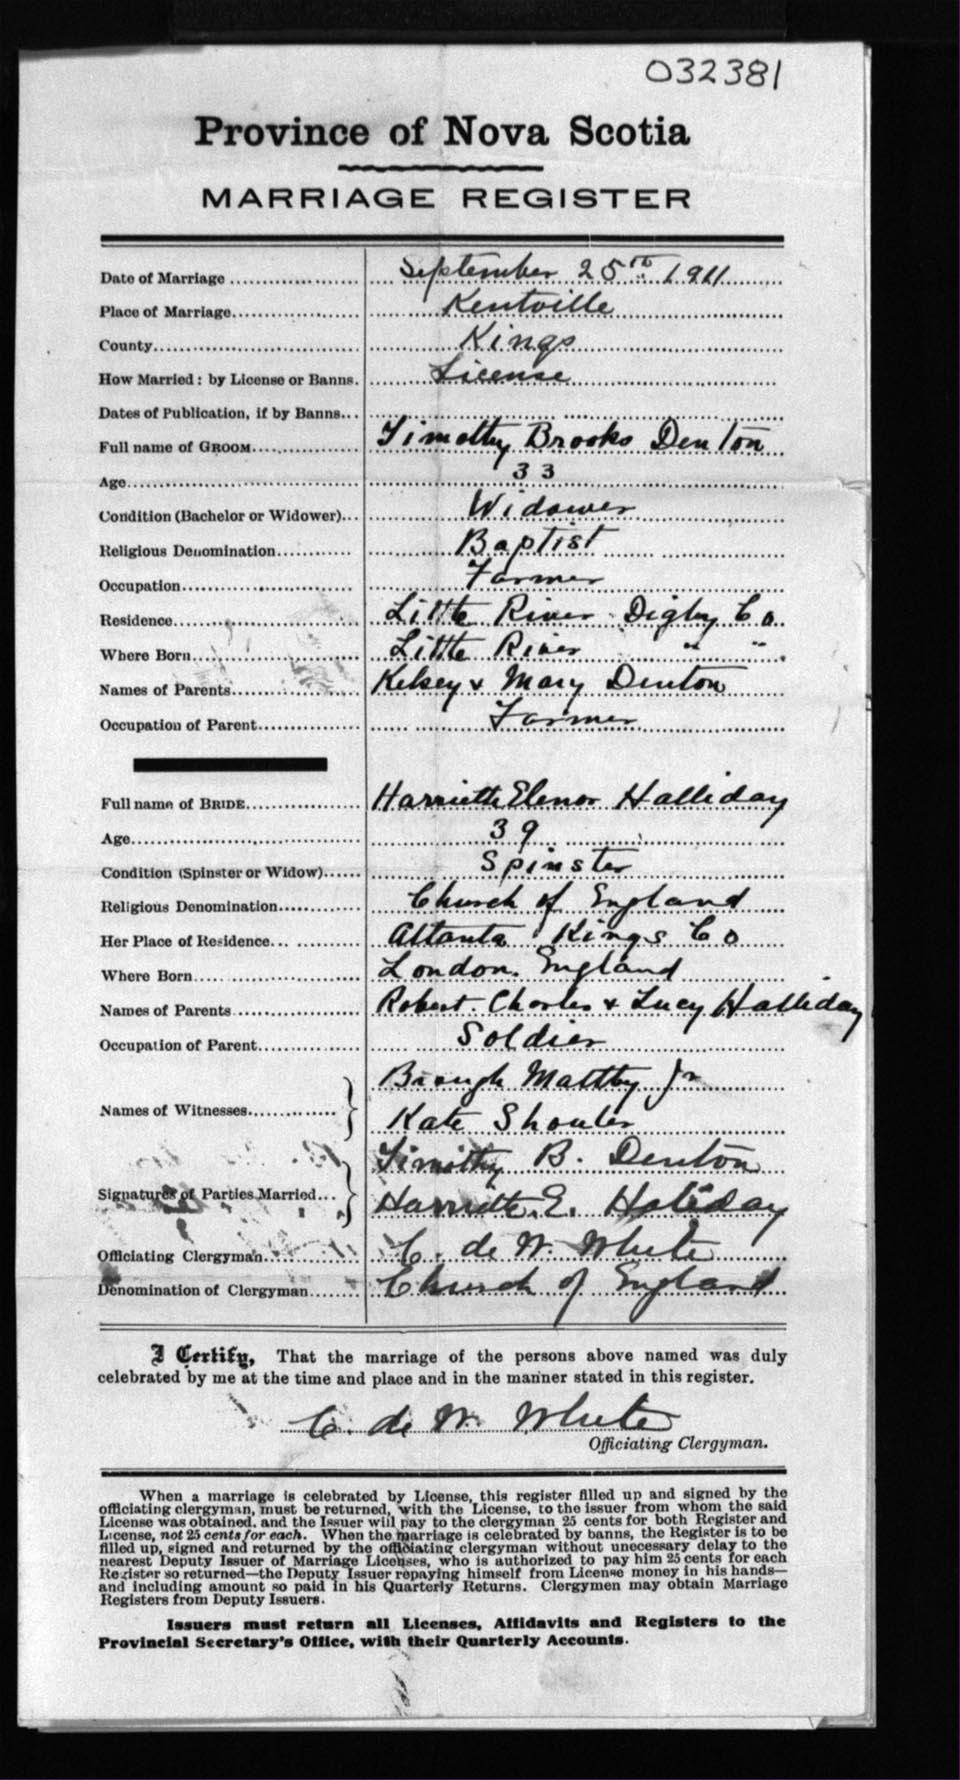 032381
Province of Nova Scotia
MARRIAGE REGISTER
Date of Marriage September 25th 1911
Place of Marriage Kentville
County Kings
How Married: by License or Banns. License
Dates of Publication, if by Banns
Full name of GROOM Timothy Brooks Denton
Age 33
Condition (Bachelor or Widower) Widower
Religious Denomination Baptist
Occupation Farmer
Residence Little River Digby Co
Where Born Little River " "
Names of Parents Kelsey & Mary Denton
Occupation of Parent Farmer
Full name of BRIDE Harriette Elenor Halliday
Age 39
Condition (Spinster or Widow) Spinster
Religious Denomination Church of England
Her Place of Residence Atlanta Kings Co
Where Born London. England
Names of Parents Robert Charles & Lucy Halliday
Occupation of Parent Soldier
Names of Witnesses Brough Maltby Jr
Kate Shouler
Signatures of Parties Married Timothy B. Denton
Harriette. E. Haliday
Officiating Clergyman C. de W. White
Denomination of Clergyman Church of England
I Certify, That the marriage of the persons above named was duly
celebrated by me at the time and place and in the manner stated in this register.
C. de W. White
Officiating Clergyman.
When a marriage is celebrated by License, this register filled up and signed by the
officiating clergyman, must be returned, with the License, to the issuer from whom the said
License was obtained, and the Issuer will pay to the clergyman 25 cents for both Register and
License, not 25 cents for each. When the marriage is celebrated by banns, the Register is to be
filled up, signed and returned by the officiating clergyman without unnecessary delay to the
nearest Deputy Issuer of Marriage Licenses, who is authorized to pay him 25 cents for each
Register so returned—the Deputy Issuer repaying himself from License money in his hands—
and including amount so paid in his Quarterly Returns. Clergymen may obtain Marriage
Registers from Deputy Issuers.
Issuers must return all Licenses, Affidavits and Registers to the
Provincial Secretary's Office, with their Quarterly Accounts.